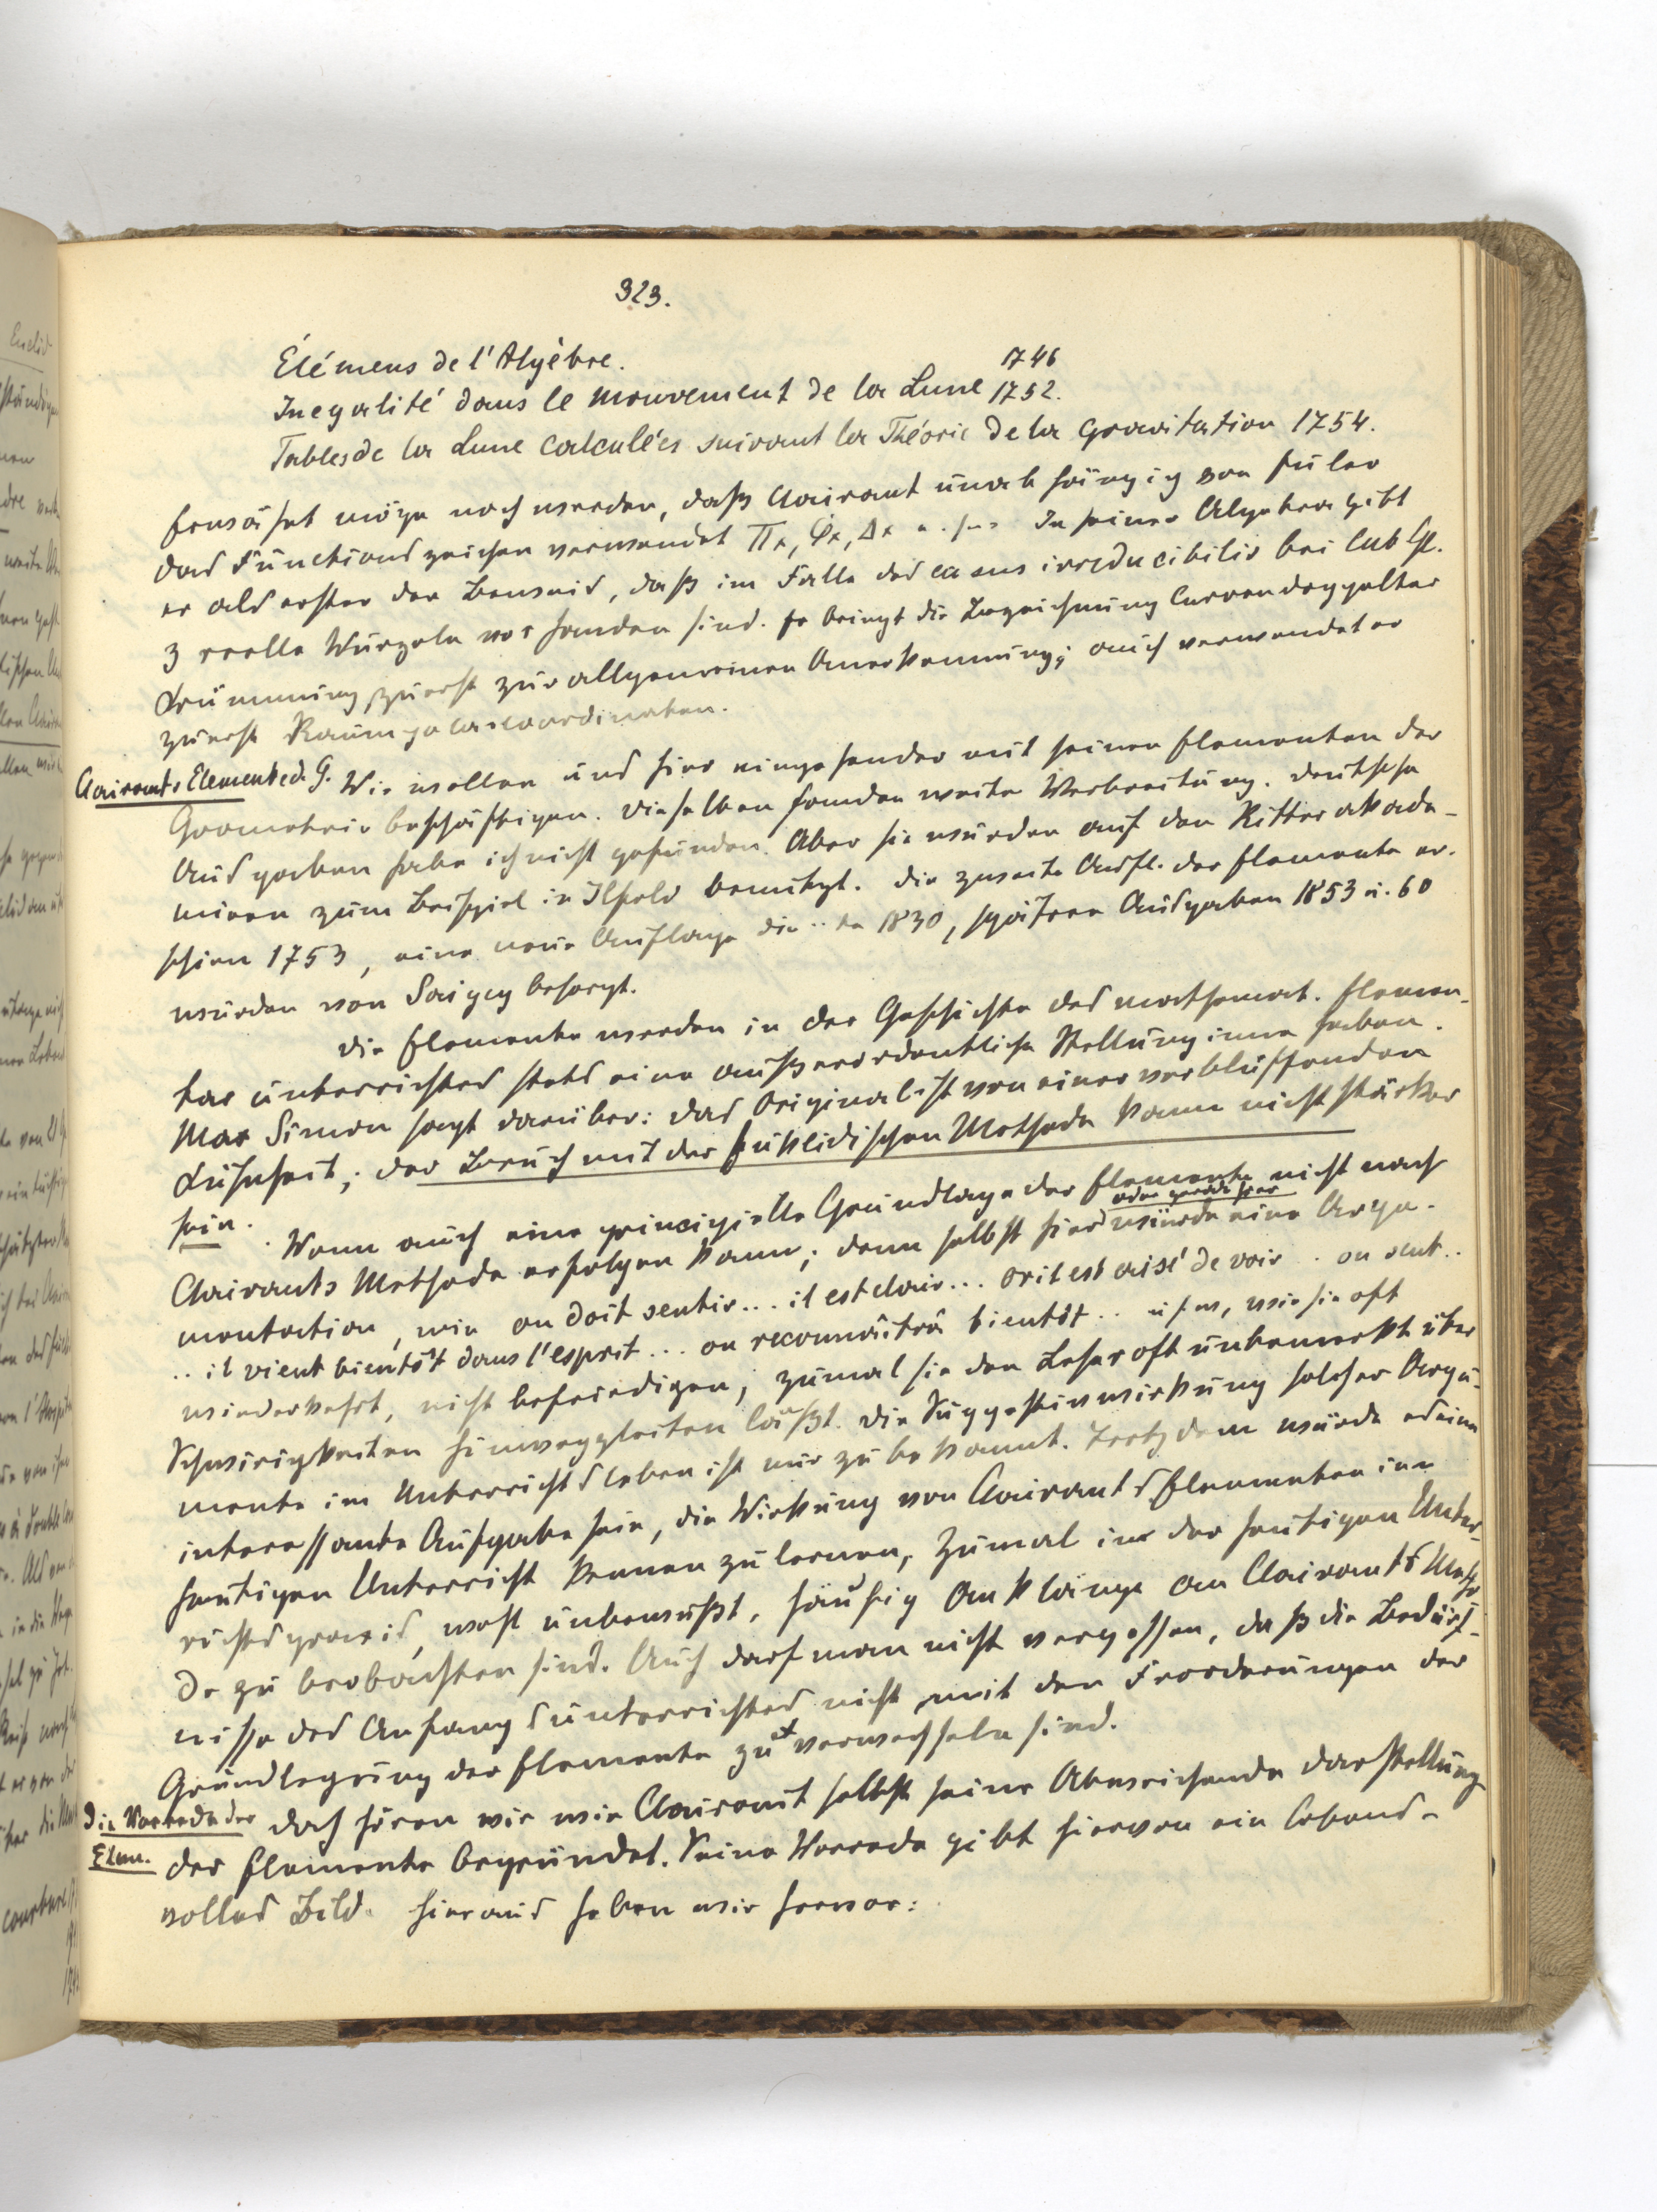 323.
Élémens de l'Algèbre. 1746
Inegalité dans le mouvement de la Lune 1752.
Tables de la Lune calculées suivant la Théorie de la gravitation 1754.
Erwähnt möge noch werden, daß Clairaut unabhängig von Euler
das Functionszeichen verwendet Πx, Φx, Δx u. s. w. In seiner Algebra gibt
er als erster den Beweis, daß im Falle des casus irreducibilis bei cub. Gl.
3 reelle Wurzeln vorhanden sind. Er bringt die Bezeichnung Curven doppelter
Krümmung zuerst zur allgemeinen Anerkennung; auch verwendet er
zuerst Raumpolarcoordinaten.
Clairauts Elemente d. G. Wir wollen uns hier eingehender mit seinen Elementen der
Geometrie beschäftigen. Dieselben fanden weite Verbreitung. Deutsche
Ausgaben habe ich nicht gefunden. Aber sie wurden auf den Ritterakade-
mieen zum Beispiel in Ilfeld benützt. Die zweite Aufl. der Elemente er-
schien 1753, eine neue Auflage die ..te 1830, spätere Ausgaben 1853 u. 60
wurden von Saigey besorgt.
Die Elemente werden in der Geschichte des mathemat. Elemen-
tar unterrichtes stets eine außerordentliche Stellung inne haben.
Max Simon sagt darüber: das Original ist von einer verblüffenden
Kühnheit; der Bruch mit der Euklidischen Methode kann nicht stärker
sein. Wenn auch eine principielle Grundlage der Elemente nicht nach
Clairauts Methode erfolgen kann; denn selbst hier oder gerade hier würde eine Argu-
mentation, wie on doit sentir... il est clair... or il est aisé de voir .. on sent..
.. il vient bientôt dans l'esprit... on reconnâitra bientôt .. u s w, wie sie oft
wiederkehrt, nicht befriedigen; zumal sie den Leser oft unbemerkt über
Schwierigkeiten hinweggleiten läßt. Die Suggestivwirkung solcher Argu-
mente im Unterrichtsleben ist nur zu bekannt. Trotzdem würde es eine
interessante Aufgabe sein, die Wirkung von Clairauts Elementen im
heutigen Unterricht kennen zu lernen, zumal in der heutigen Unter-
richtspraxis, wohl unbewußt, häufig Anklänge an Clairauts Metho-
de zu beobachten sind. Auch darf man nicht vergessen, daß die Bedürf-
nisse des Anfangsunterrichtes nicht mit den Forderungen der
Grundlegung der Elemente zu verwechseln sind.
Die Vorrede der Elem. Doch hören wir wie Clairaut selbst seine Abweichende Darstellung
der Elemente begründet. Seine Vorrede gibt hiervon ein lebens-
volles Bild. Hieraus heben wir hervor: